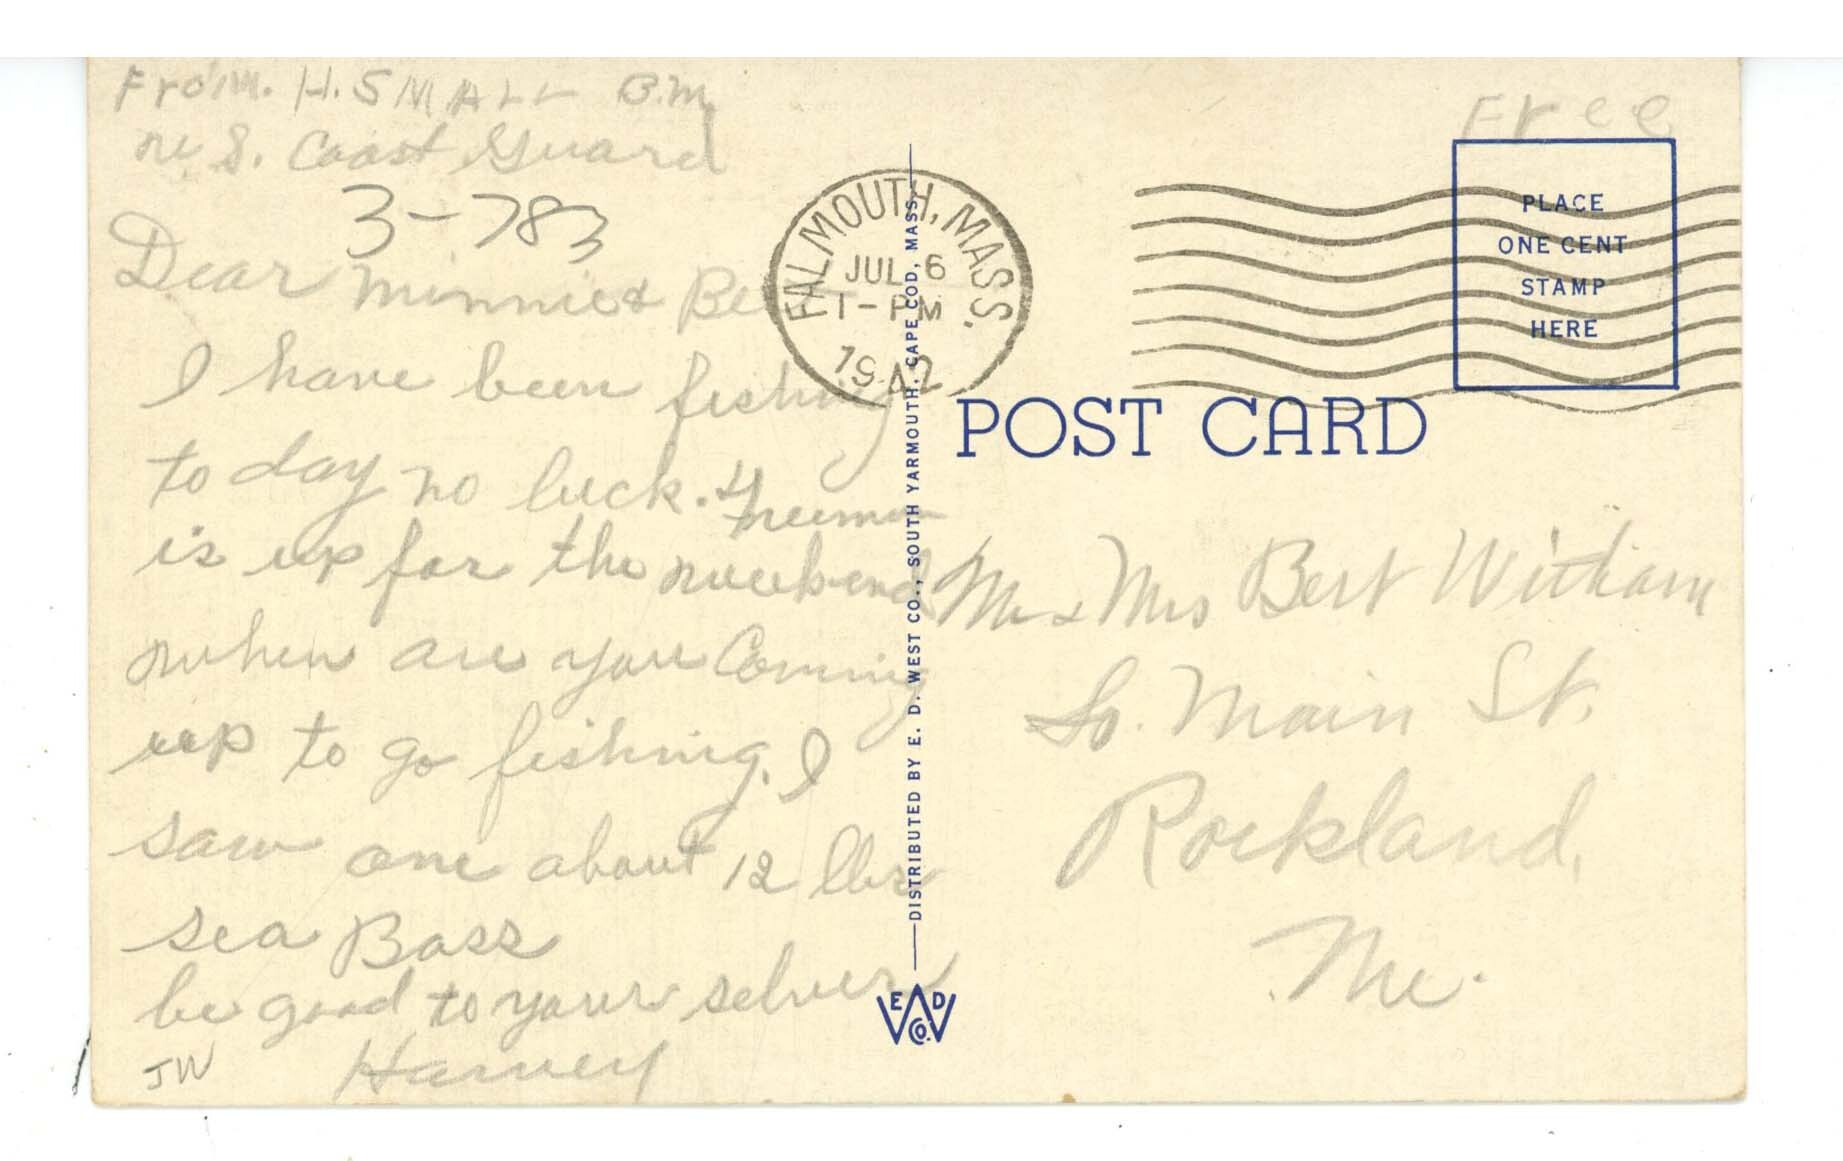 From. H. SMALL B.M.
U.S. Coast Guard
3-783
Dear Minnie & Bert
I have been fishing
to day no luck. Freeman
is up for the weekend
when are you Coming
up to go fishing. I
saw one about 12 lbs
sea Bass
be good to your selves
Harvey
JW
FALMOUTH, MASS.
JUL 6
1-PM
1942
DISTRIBUTED BY E. D. WEST CO., SOUTH YARMOUTH, CAPE COD, MASS.
E D
W
CO.
Free
PLACE
ONE CENT
STAMP
HERE
POST CARD
Mr & Mrs Bert Witham
So. Main St.
Rockland,
Me.